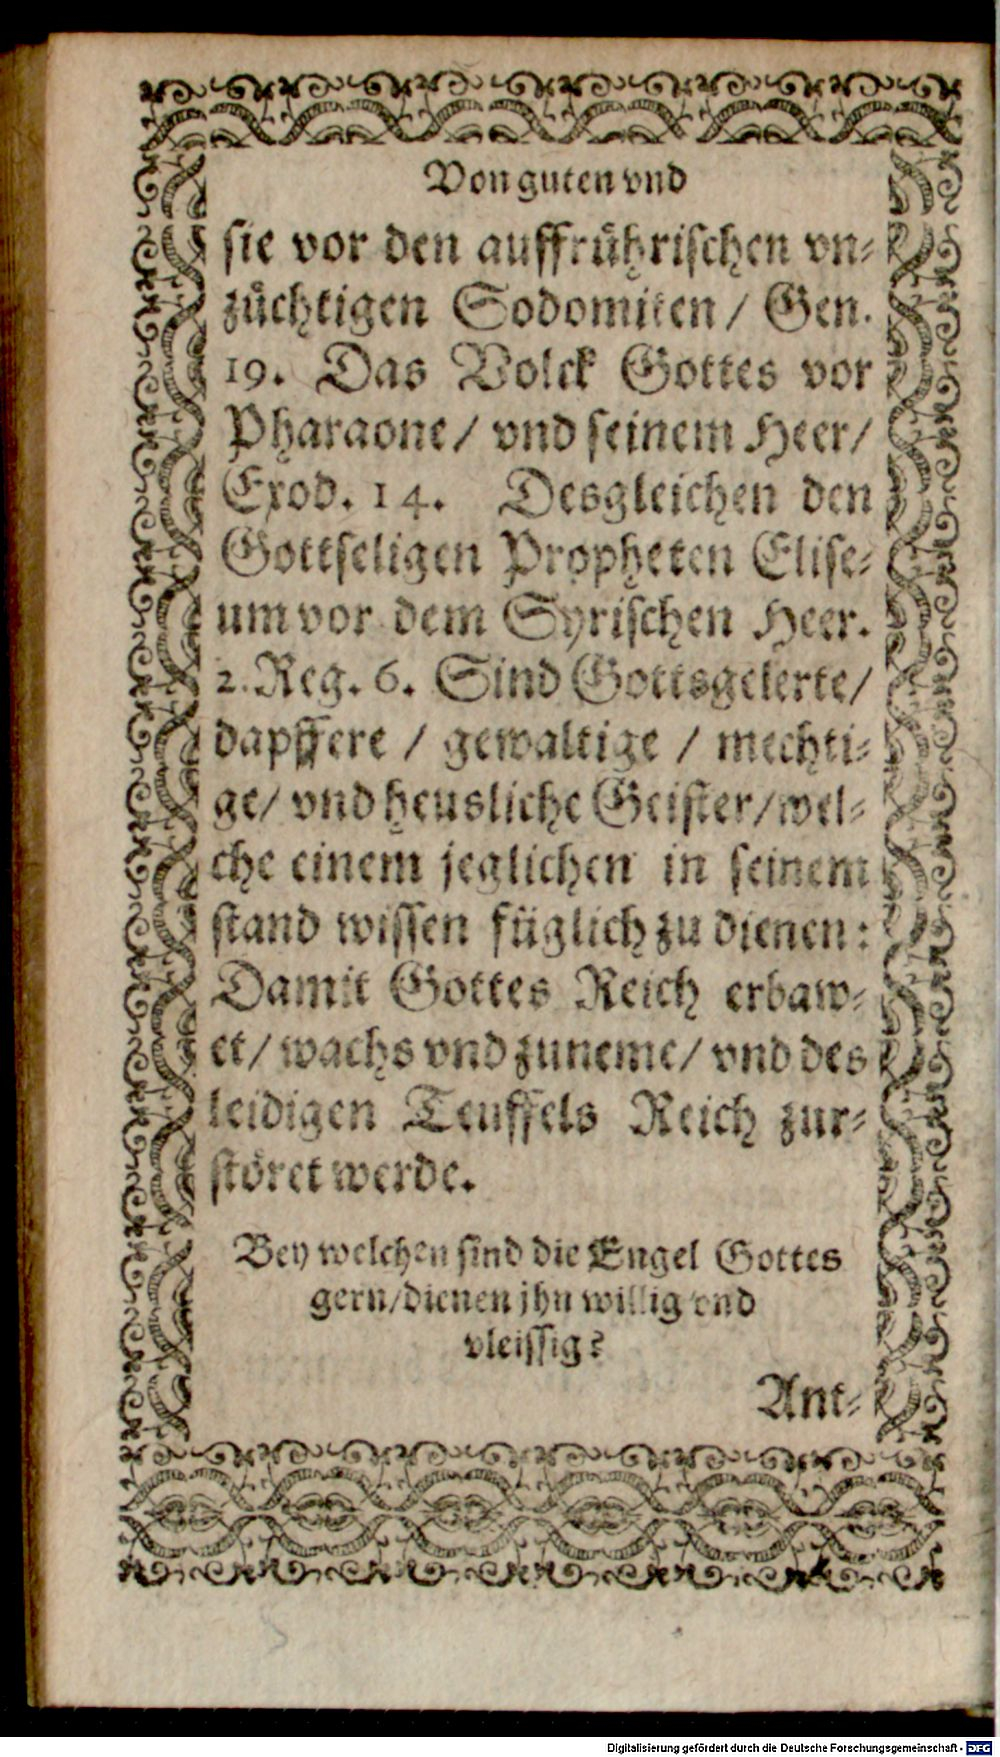 Von guten vnd
sie vor den auffrührischen vn-
züchtigen Sodomiten / Gen.
19. Das Volck Gottes vor
Pharaone / vnd seinem Heer /
Exod. 14. Desgleichen den
Gottseligen Propheten Elise-
um vor dem Syrischen Heer.
2. Reg. 6. Sind Gottsgelerte /
dapffere / gewaltige / mechti-
ge / vnd heusliche Geister / wel-
che einem jeglichen in seinem
stand wissen füglich zu dienen:
Damit Gottes Reich erbaw-
et / wachs vnd zuneme / vnd des
leidigen Teuffels Reich zur-
störet werde.
Bey welchen sind die Engel Gottes
gern / dienen jhn willig vnd
vleissig?
Ant-
Digitalisierung gefördert durch die Deutsche Forschungsgemeinschaft - DFG